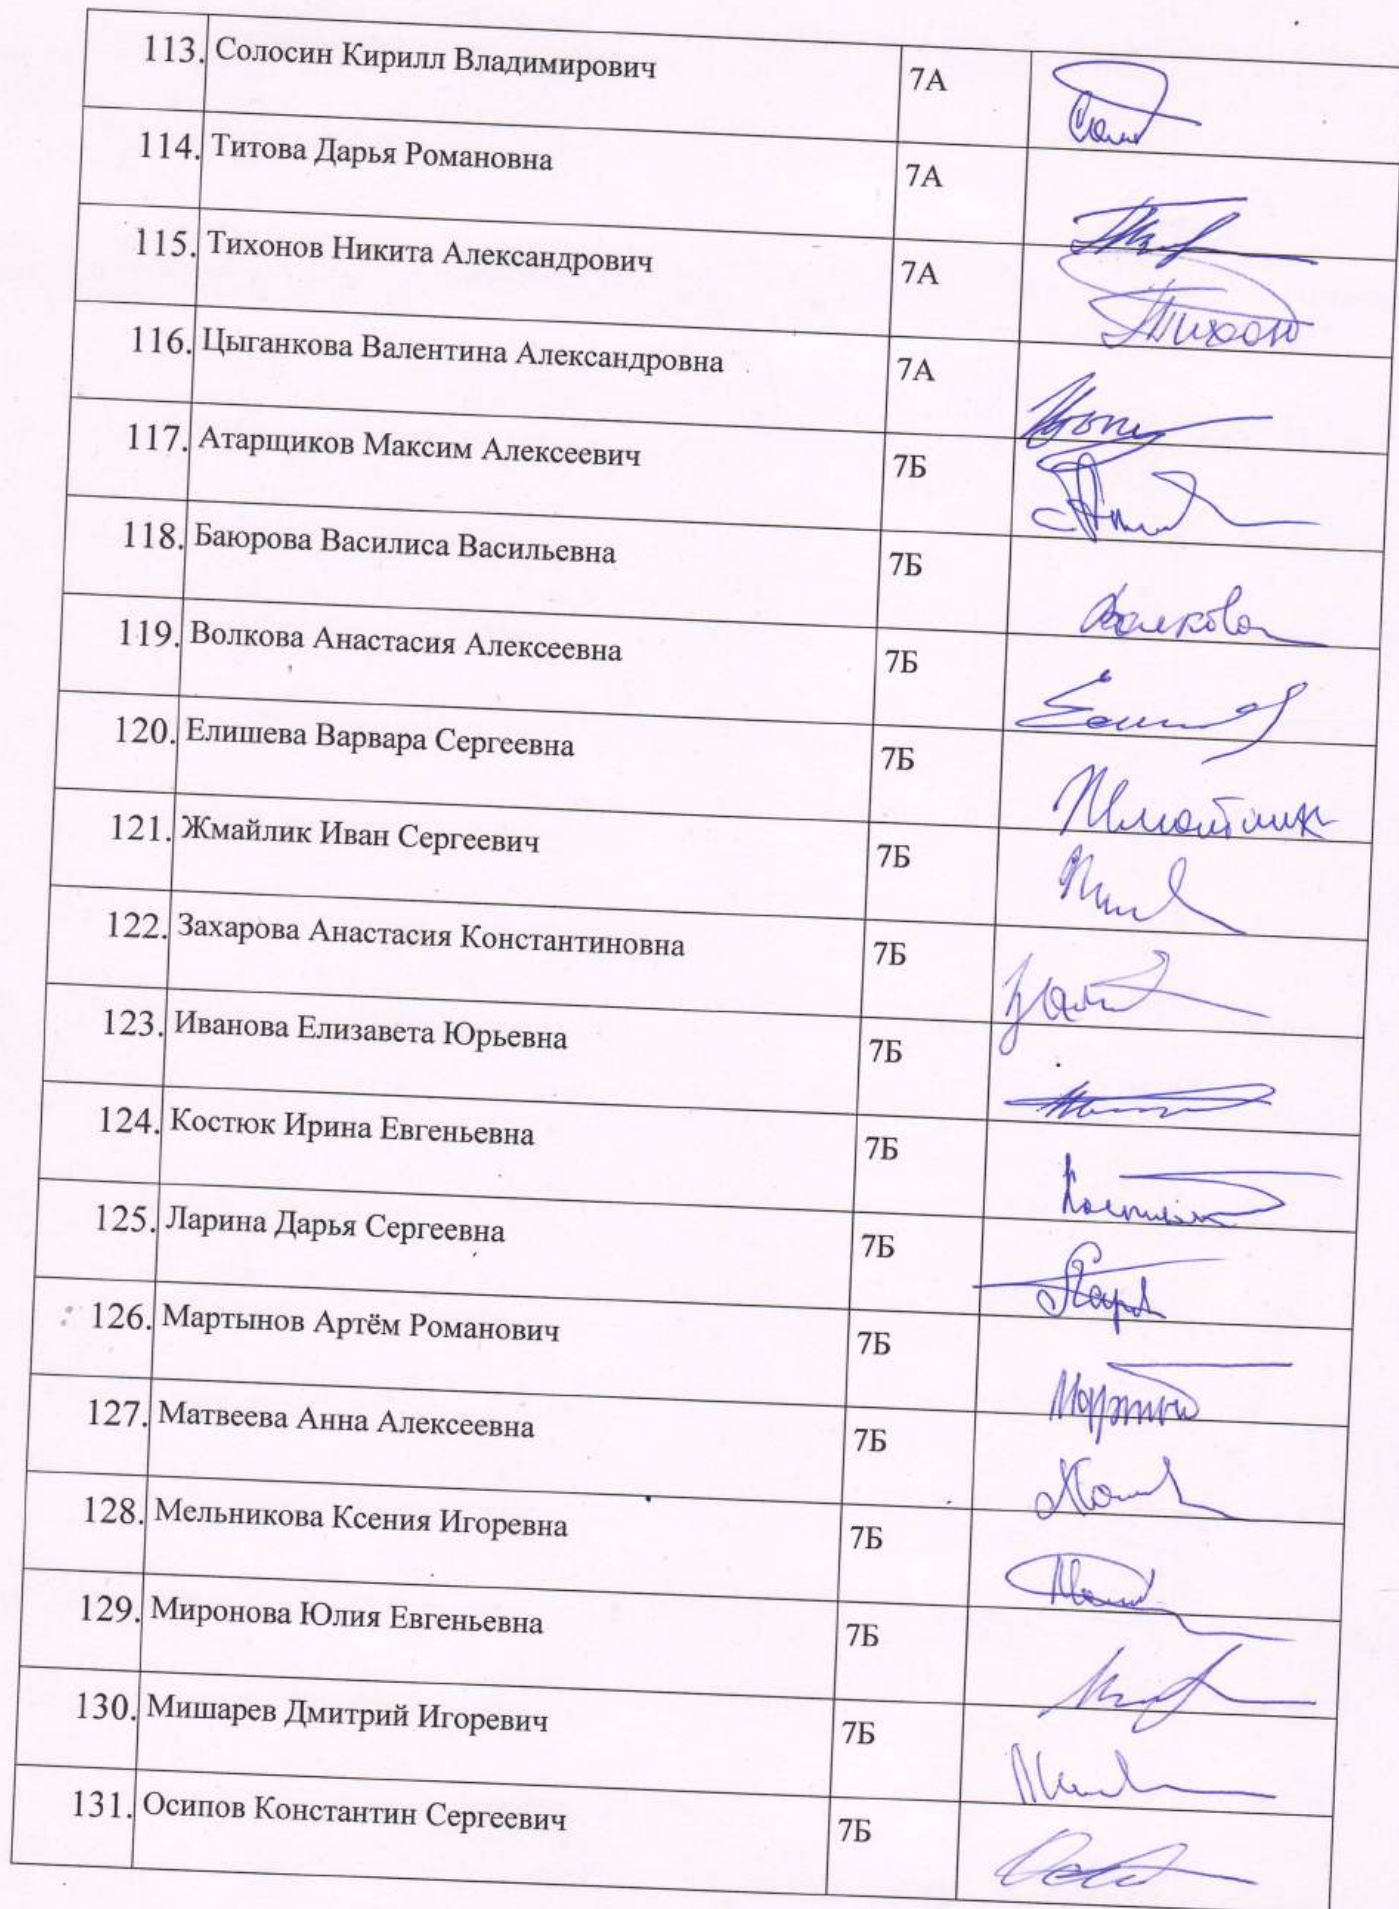 113. Солосин Кирилл Владимирович 7А
114. Титова Дарья Романовна 7А
115. Тихонов Никита Александрович 7А
116. Цыганкова Валентина Александровна 7А
117. Атарщиков Максим Алексеевич 7Б
118. Баюрова Василиса Васильевна 7Б
119. Волкова Анастасия Алексеевна 7Б
120. Елишева Варвара Сергеевна 7Б
121. Жмайлик Иван Сергеевич 7Б
122. Захарова Анастасия Константиновна 7Б
123. Иванова Елизавета Юрьевна 7Б
124. Костюк Ирина Евгеньевна 7Б
125. Ларина Дарья Сергеевна 7Б
126. Мартынов Артём Романович 7Б
127. Матвеева Анна Алексеевна 7Б
128. Мельникова Ксения Игоревна 7Б
129. Миронова Юлия Евгеньевна 7Б
130. Мишарев Дмитрий Игоревич 7Б
131. Осипов Константин Сергеевич 7Б